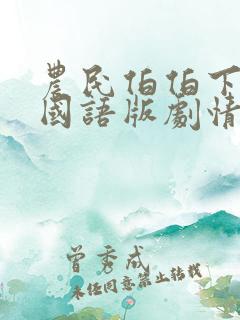 農民伯伯下
國語版劇情
曾秀成
未经同意禁止转载